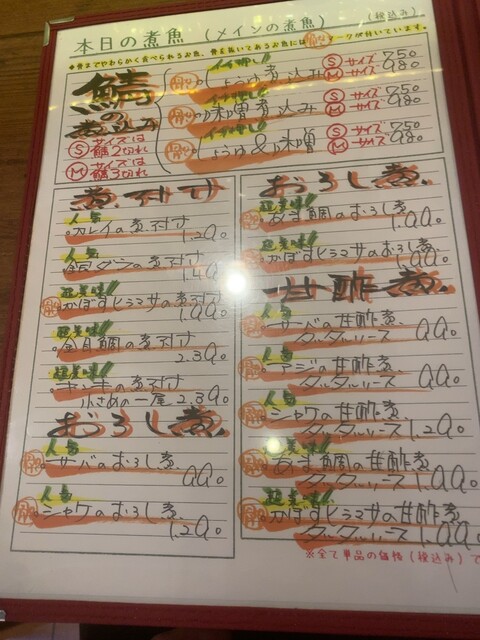 本日の煮魚 (メインの煮魚) (税込み)
◆骨までやわらかく食べられるお魚、骨を抜いてあるお魚には骨なしマークが付いています。
鯖の煮込み
Ⓢサイズは鯖2切れ
Ⓜサイズは鯖3切れ
イチ押し!!
しょうゆ煮込み Ⓢサイズ 750
Ⓜサイズ 980
イチ押し!!
味噌煮込み Ⓢサイズ 750
Ⓜサイズ 980
イチ押し!!
しょうゆ&味噌 Ⓢサイズ 750
Ⓜサイズ 980
煮付け
人気
カレイの煮付け
1.290
人気
銀ダラの煮付け
超美味!!
かぼすヒラマサの煮付け
超美味!!
金目鯛の煮付け
2.390
超美味!!
キンキの煮付け
小さめの一尾 2.390
おろし煮
人気
サーバのおろし煮
990
人気
シャケのおろし煮
1.290
おろし煮
超美味!!
あま鯛のおろし煮
超美味!!
かぼすヒラマサのおろし煮
甘酢煮
人気
サーバの甘酢煮
タルタルソース 990
人気
アジの甘酢煮
タルタルソース 990
人気
シャケの甘酢煮
タルタルソース 1.290
超美味!!
あま鯛の甘酢煮
タルタルソース
超美味!!
かぼすヒラマサの甘酢煮
タルタルソース
※全て単品の価格(税込み)で